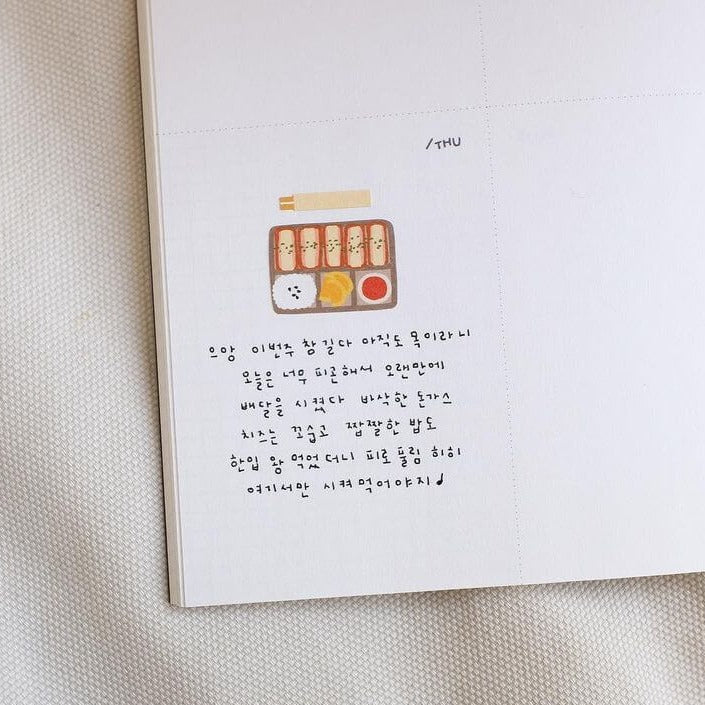 /THU
으앙 이번주 참 길다 아직도 목이라니
오늘은 너무 피곤해서 오랜만에
배달을 시켰다 바삭한 돈가스
치즈는 꼬숩고 짭짤한 밥도
한입 왕 먹었더니 피로 풀림 히히
여기서만 시켜먹어야지♪